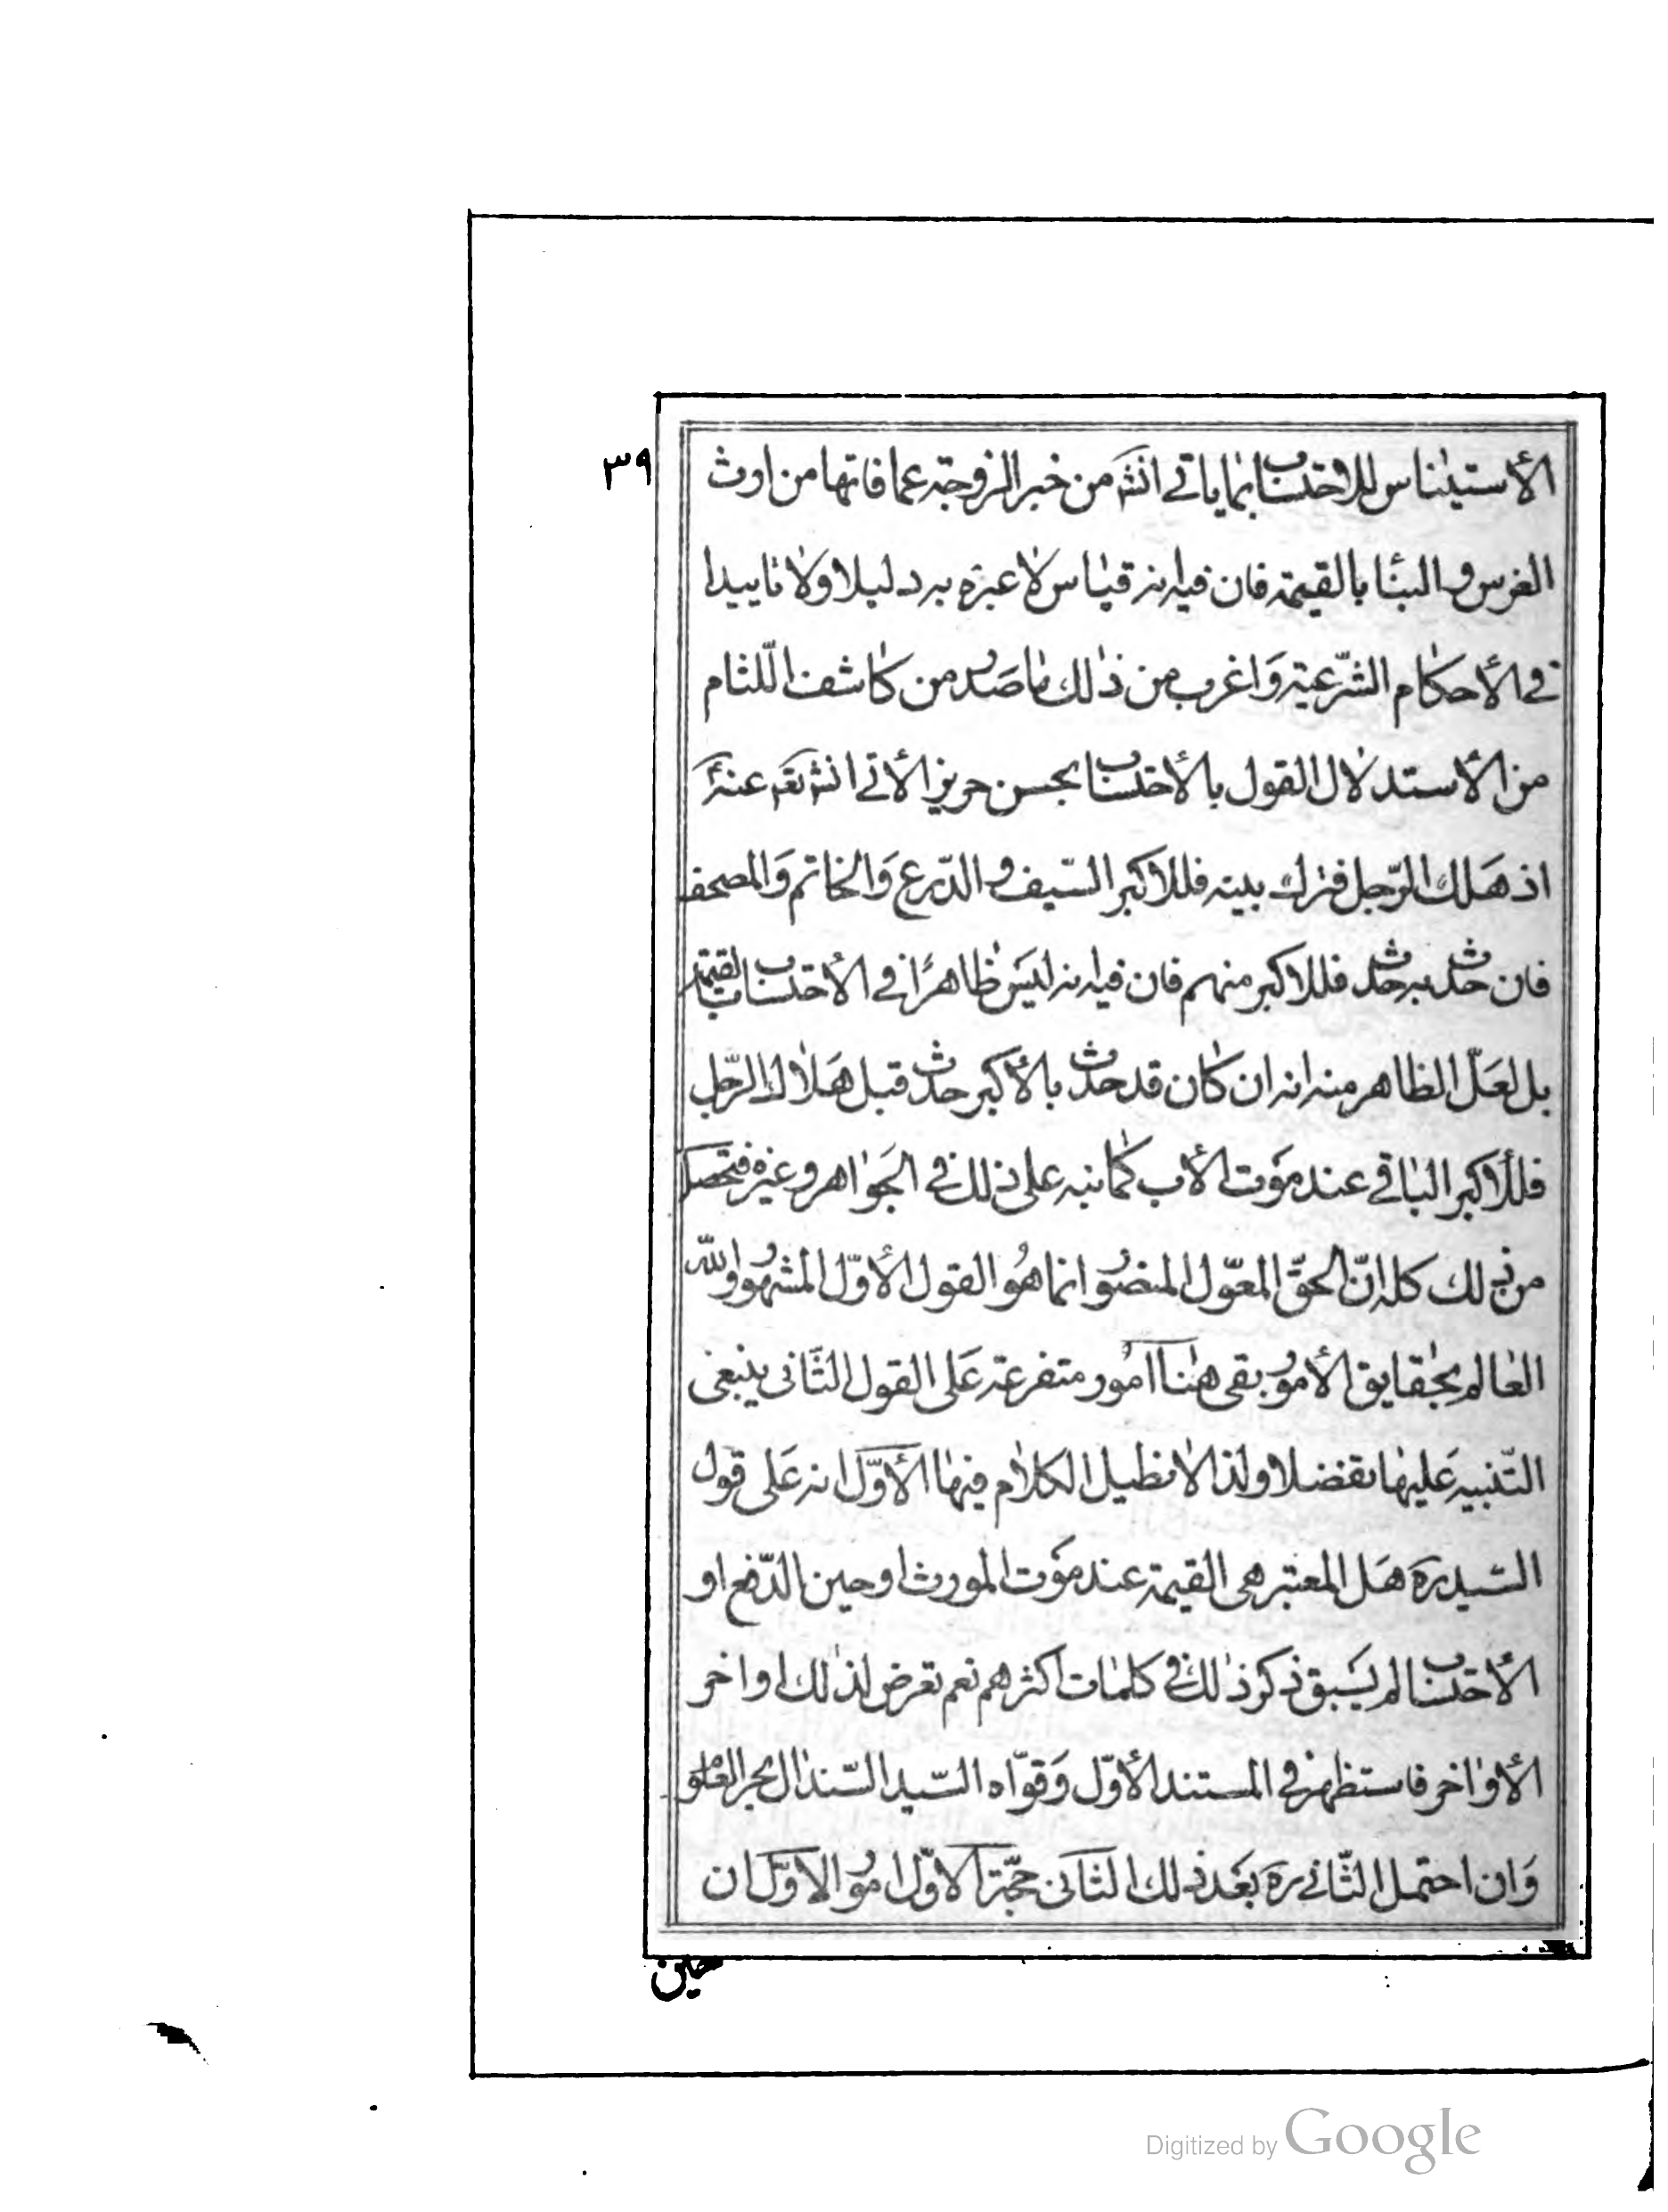 ٣٩
الأستيناس للاحتساب بما ياتي انشَ من خبر الزوجة عما فاتها من اوث
الغرس والبنا بالقيمة فان فيه انه قياس لا عبرة به دليلا ولا تاييدا
في الأحكام الشّرعية وَاغرب من ذلك ما صَدر من كاشف اللّثام
من الأستدلال القول بالأحتساب بحسن حريز الأتي انشَ تعَ عنهَ
اذ هَلك الرّجل فترك بينه فللاكبر السّيف والدّرع وَالخاتم وَالمصحف
فان حدث به حدث فللاكبر منهم فان فيه انه ليسَ ظاهرًا في الأحتساب بالقيمة
بل لعَلّ الظاهر منه انه ان كان قد حدث بالأكبر حدث قبل هَلاك الرّجل
فللأكبر الباقي عند موَت الأب كما نبه على ذلك في الجَواهر وغيره فتحصل
من ذلك كله انّ الحقّ المعوّل المنصُور انما هُو القول الأوّل المشهُور والله
العالم بحقايق الأمُور بقى هنا امُور متفرعة عَلى القول الثّانى ينبغى
التّنبيه عَليها تفضلا ولذا لا نطيل الكلام فيها الأوّل انه عَلى قول
السّيد رهَ هَل المعتبر هى القيمة عند موَت المورث او حين الدّفع او
الأحتساب لم يَسبق ذكر ذلك في كلمات اكثرهم نعم تعرض لذلك اواخر
الأواخر فاستظهر في المستند الأوّل وَقوّاه السّيد السّند ال بحر العلو
وَان احتمل الثّانے رهَ بعَد ذلك الثانى حجّة الاوّل امُور الاوّل ان
حين
Digitized by Google